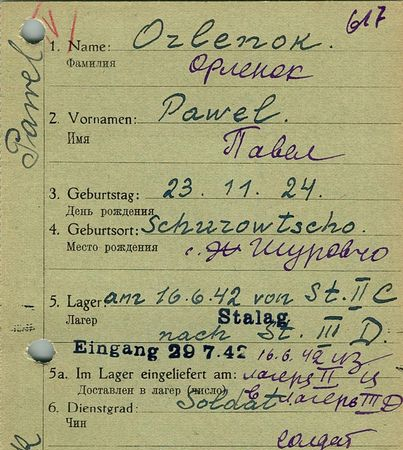 617
Pawel
1. Name: Orlenok.
Фамилия Орленок
2. Vornamen: Pawel.
Имя Павел
3. Geburtstag: 23. 11. 24.
День рождения
4. Geburtsort: Schurowtscho.
Место рождения с. Шуровчо
5. Lager: am 16.6.42 von St. II C
Лагер Stalag
nach St. III D.
Eingang 29 7.42 16.6.42 из
5a. Im Lager eingeliefert am: лагерь II Ц
Доставлен в лагер (число) в лагерь III D
6. Dienstgrad: Soldat
Чин солдат